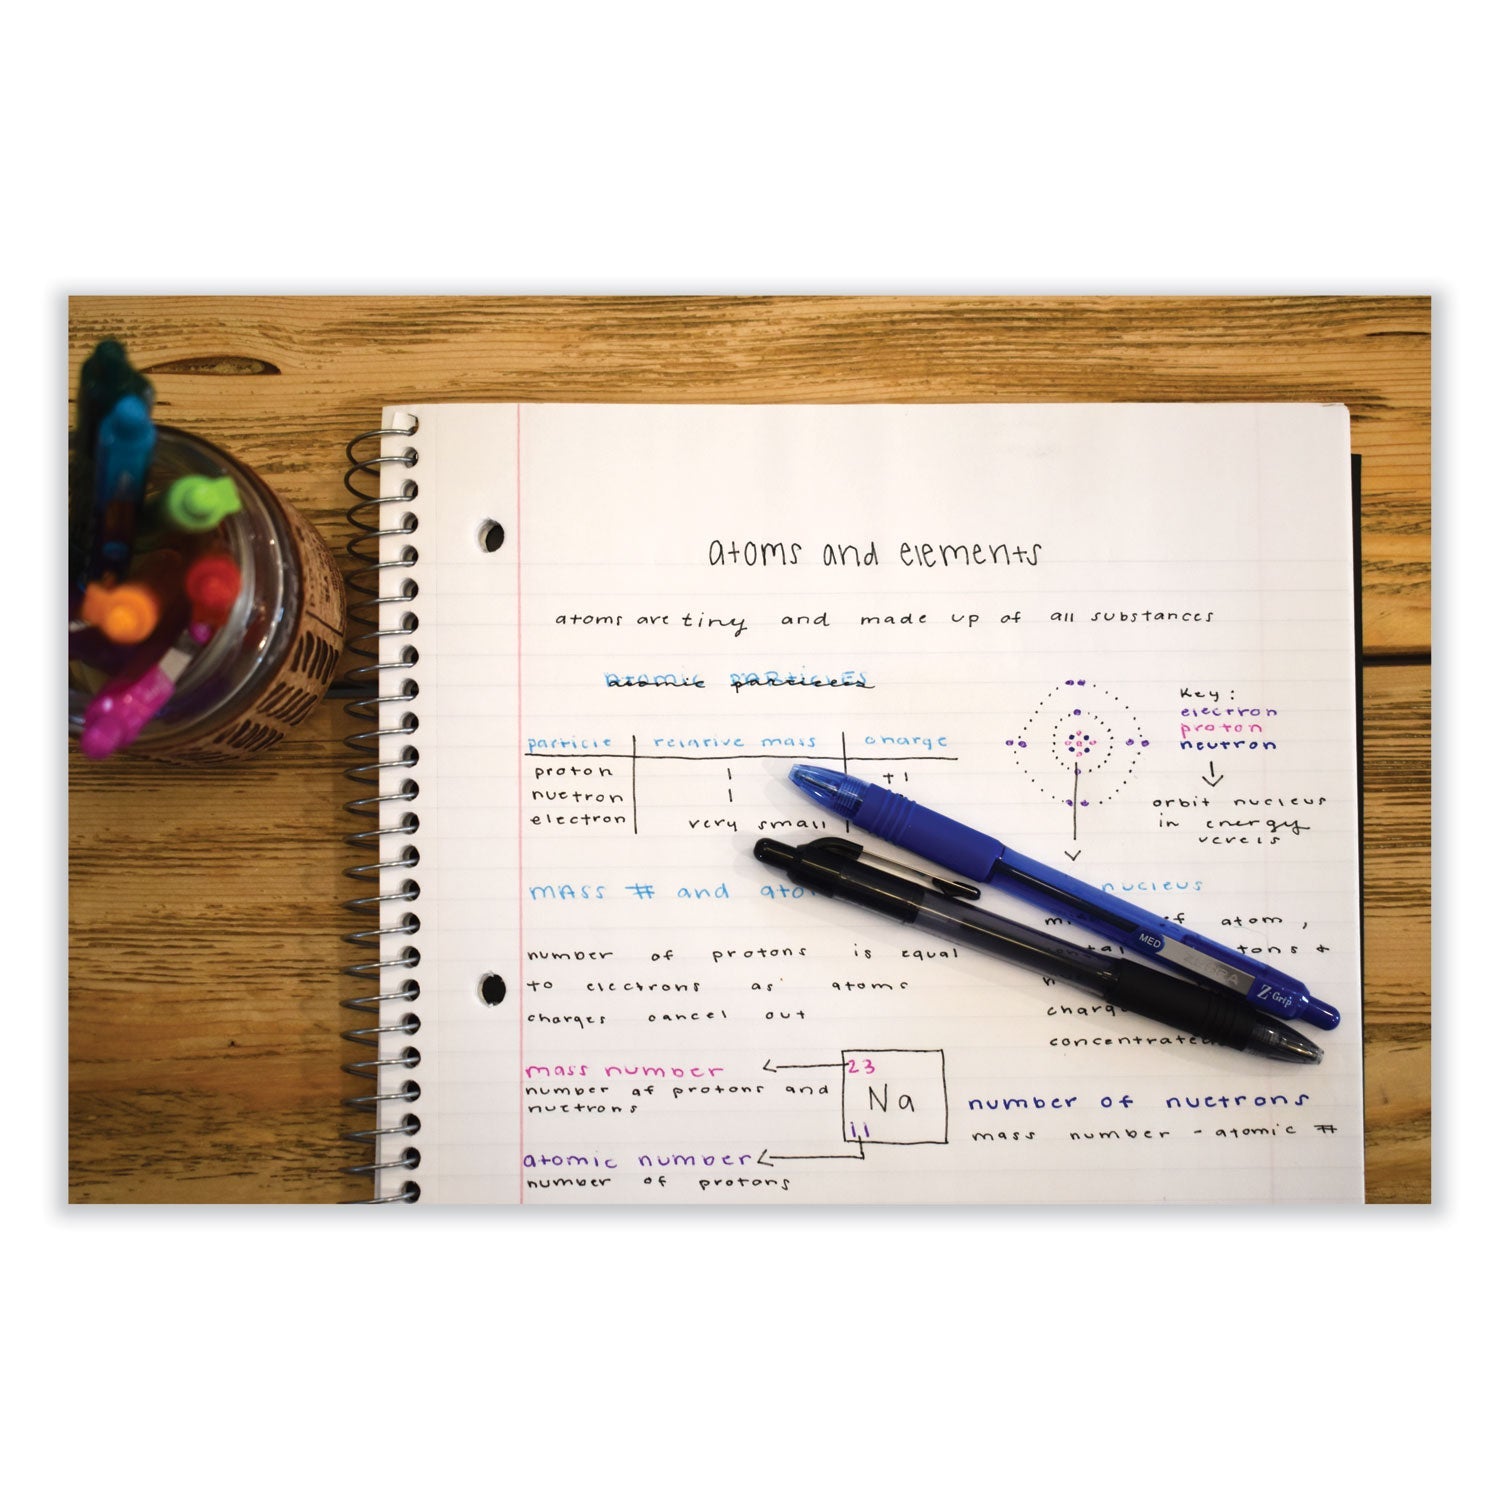 atoms and elements
atoms are tiny and made up of all substances
atomic particles
particle relative mass charge
proton 1 +1
nuetron 1
electron very small
Key:
electron
proton
neutron
orbit nucleus
in energy
MASS # and
nucleus
number of protons is equal
to electrons as atoms
charges cancel out
of atom,
&
concentrated
mass number
number of protons and
nuetrons
23
Na
11
atomic number
number of protons
number of nuetrons
mass number - atomic #
MED
ZEBRA
Z-Grip